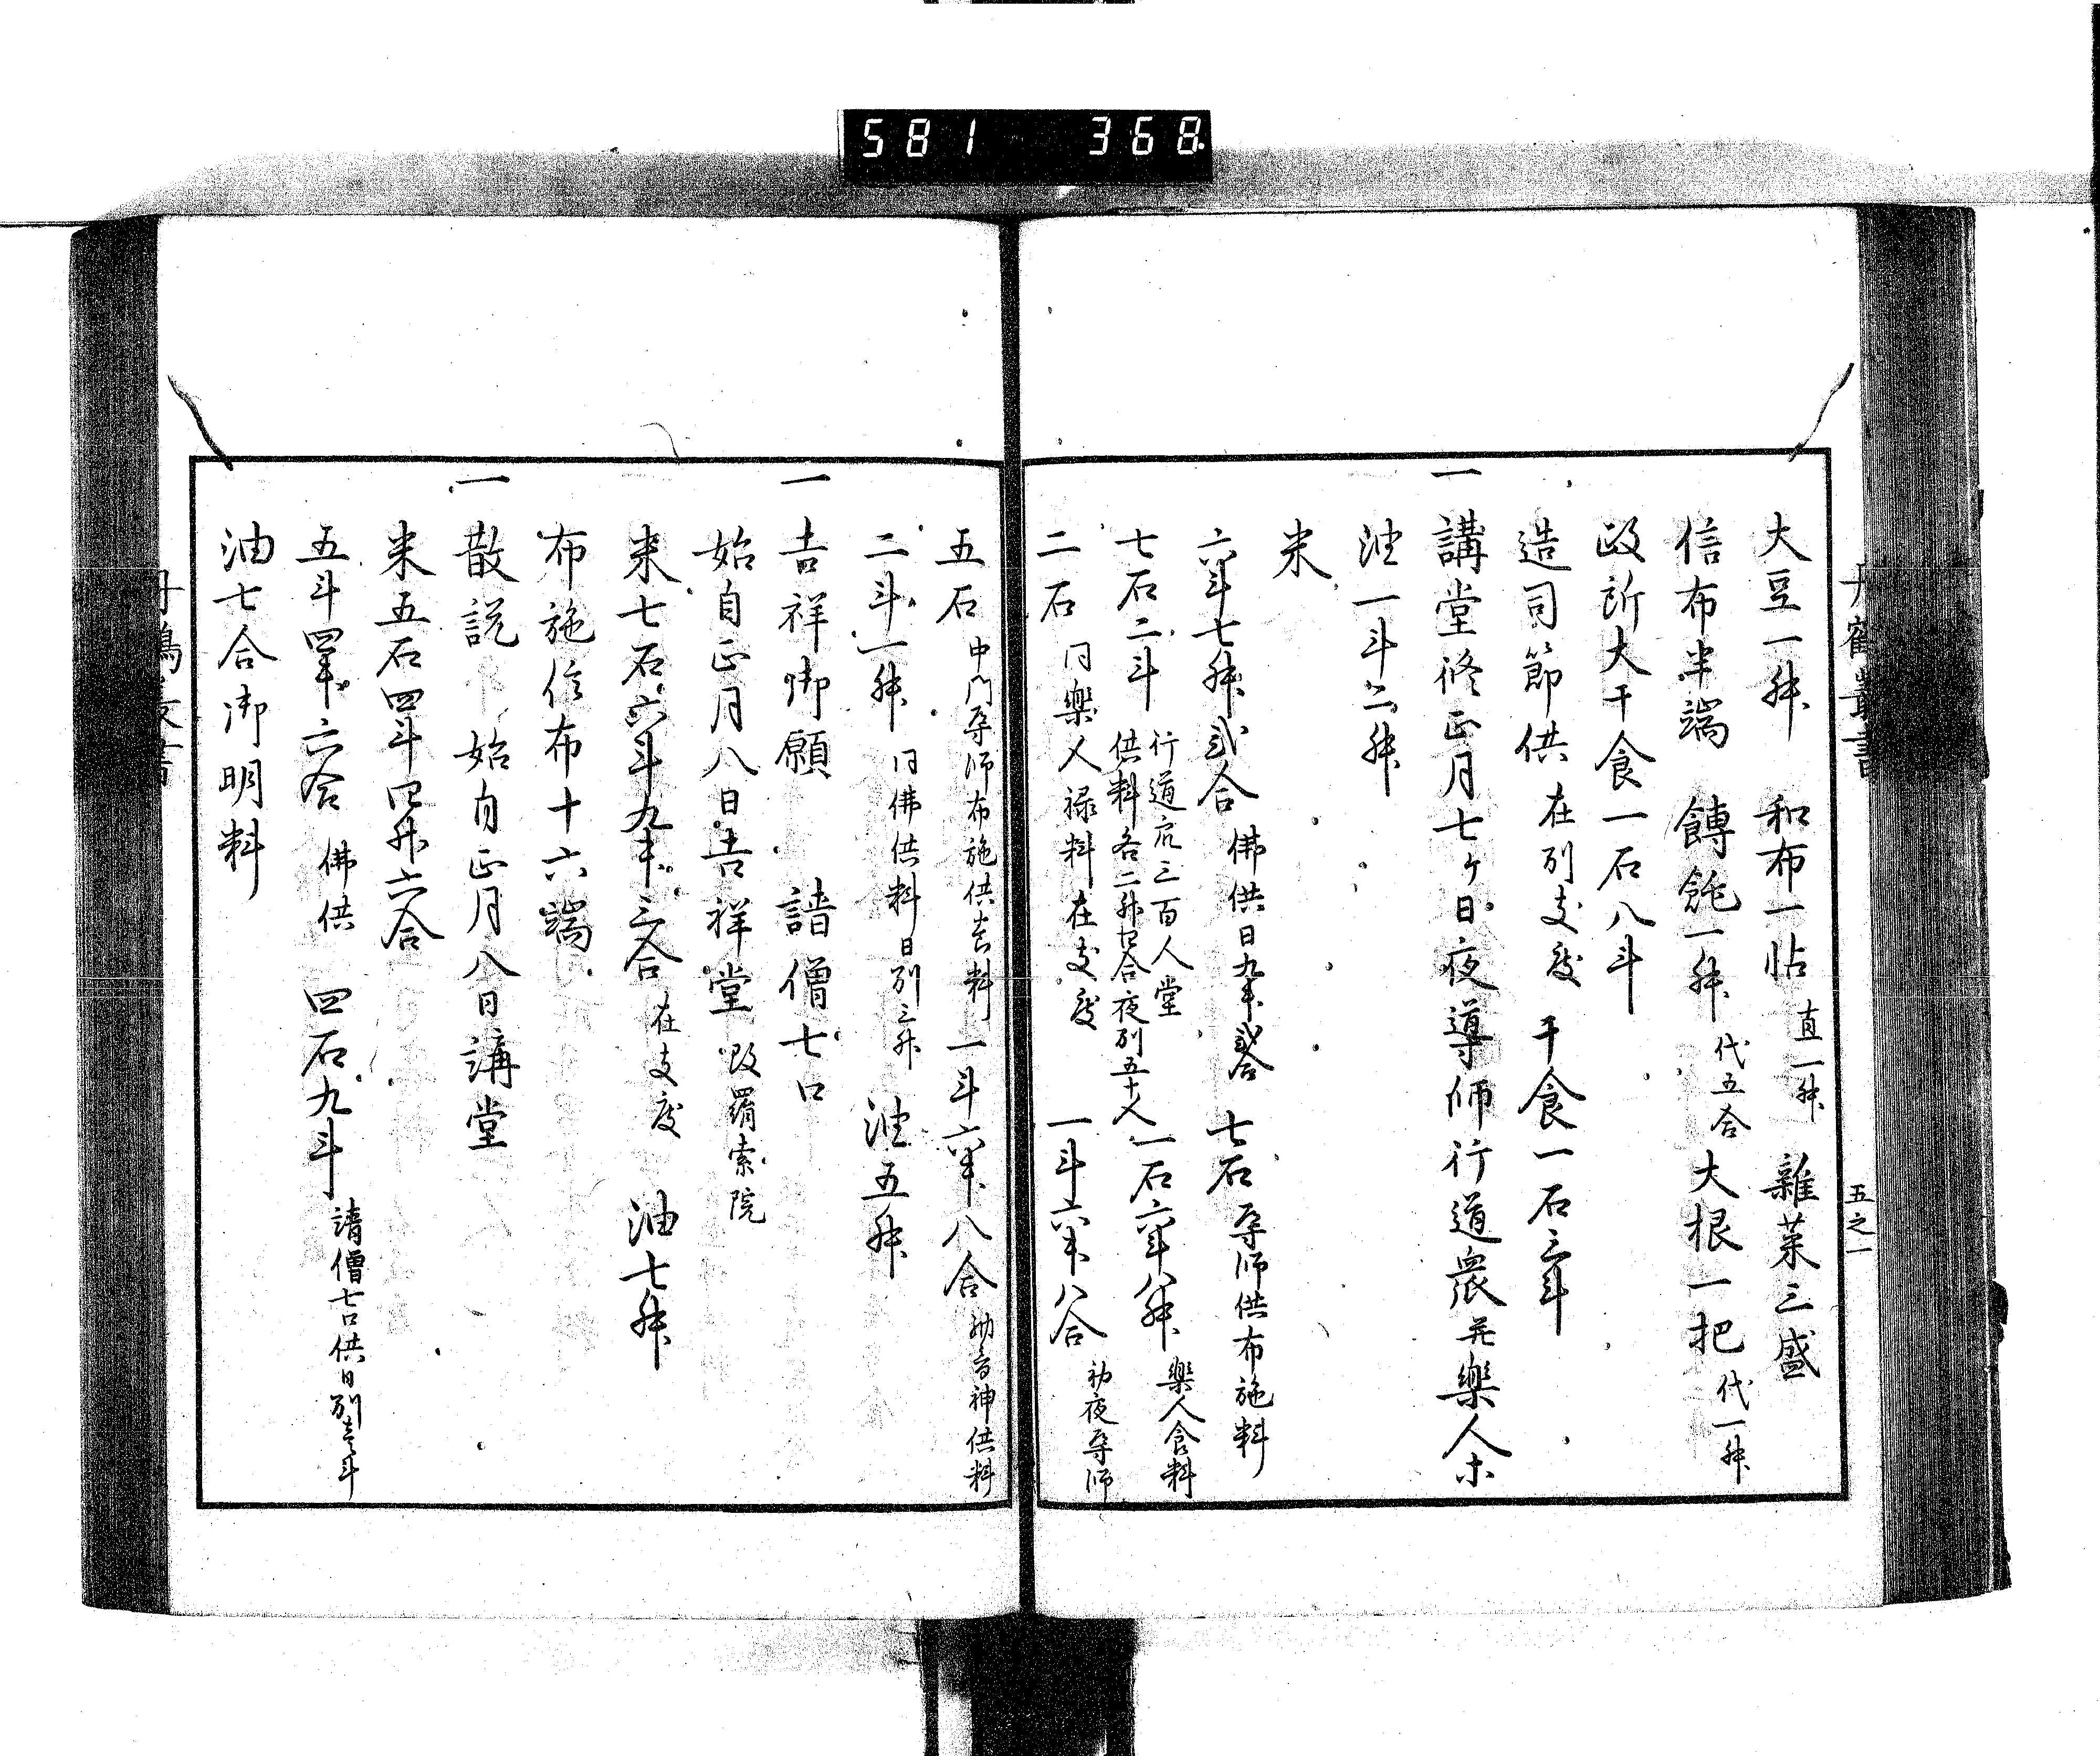 581 368
丹鶴叢書 五之一
大豆一舛 和布一帖 直一舛 雜菜三盛
信布半端 餺飩一舛 代五合 大根一把 代一舛
政所大干食一石八斗
造司節供 在列支度 干食一石三斗
一 講堂修正月七ケ日夜導師行道衆并樂人ホ
油一斗二舛
米
六斗七舛弐合 佛供日九舛弐合 七石 導師供布施料
七石二斗 行道衆三百人堂
供料各二舛四合夜列五十人 一石六斗八舛 樂人食料
二石 同樂人禄料在支度 一斗六舛八合 初夜導師
五石 中門導師布施供養料 一斗六舛八合 神供料
二斗一舛 同佛供料日列三舛 油五舛
一 吉祥御願 請僧七口
始自正月八日吉祥堂 改羂索院
米七石六斗九舛三合 在支度 油七舛
布施信布十六端
一 散説 始自正月八日講堂
米五石四斗四舛六合
五斗四舛六合 佛供 四石九斗 請僧七口供日列壹斗
油七合御明料